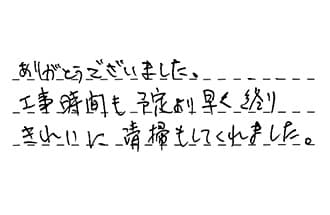 ありがとうございました。
工事時間も予定より早く終り
きれいに清掃もしてくれました。